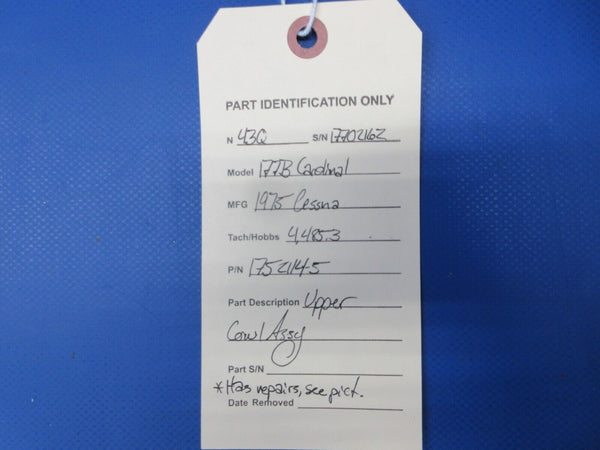 PART IDENTIFICATION ONLY
N 43Q S/N 17702162
Model 177B Cardinal
MFG 1975 Cessna
Tach/Hobbs 4,485.3
P/N 1752114-5
Part Description Upper
Cowl Assy
Part S/N
*Has repairs, see pict.
Date Removed